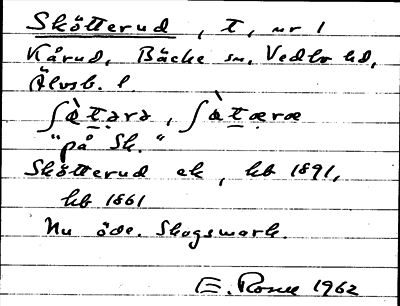 Skötterud, t, nr 1
Kårud, Bäcke sn, Vedbo hd,
Älvsb. l.
ʃø̀tərə, ʃø̀tæræ
"på Sk."
Skötterud ek, kb 1891,
kb 1861
Nu öde. Skogsmark.
E. Rosell 1962